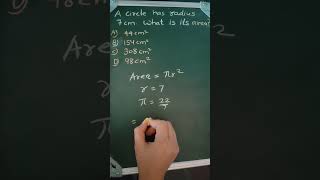 A circle has radius
7cm. What is its area?
A) 44cm²
B) 154cm²
C) 308cm²
D) 98cm²
Area = πr²
r = 7
π = 22/7
=